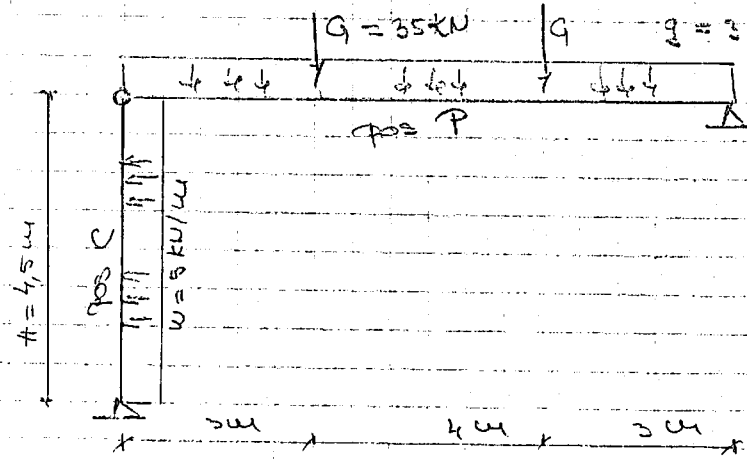 G = 35 kN
G
q = ?
pos P
H = 4,5 m
pos C
w = 5 kN/m
3 m
4 m
3 m